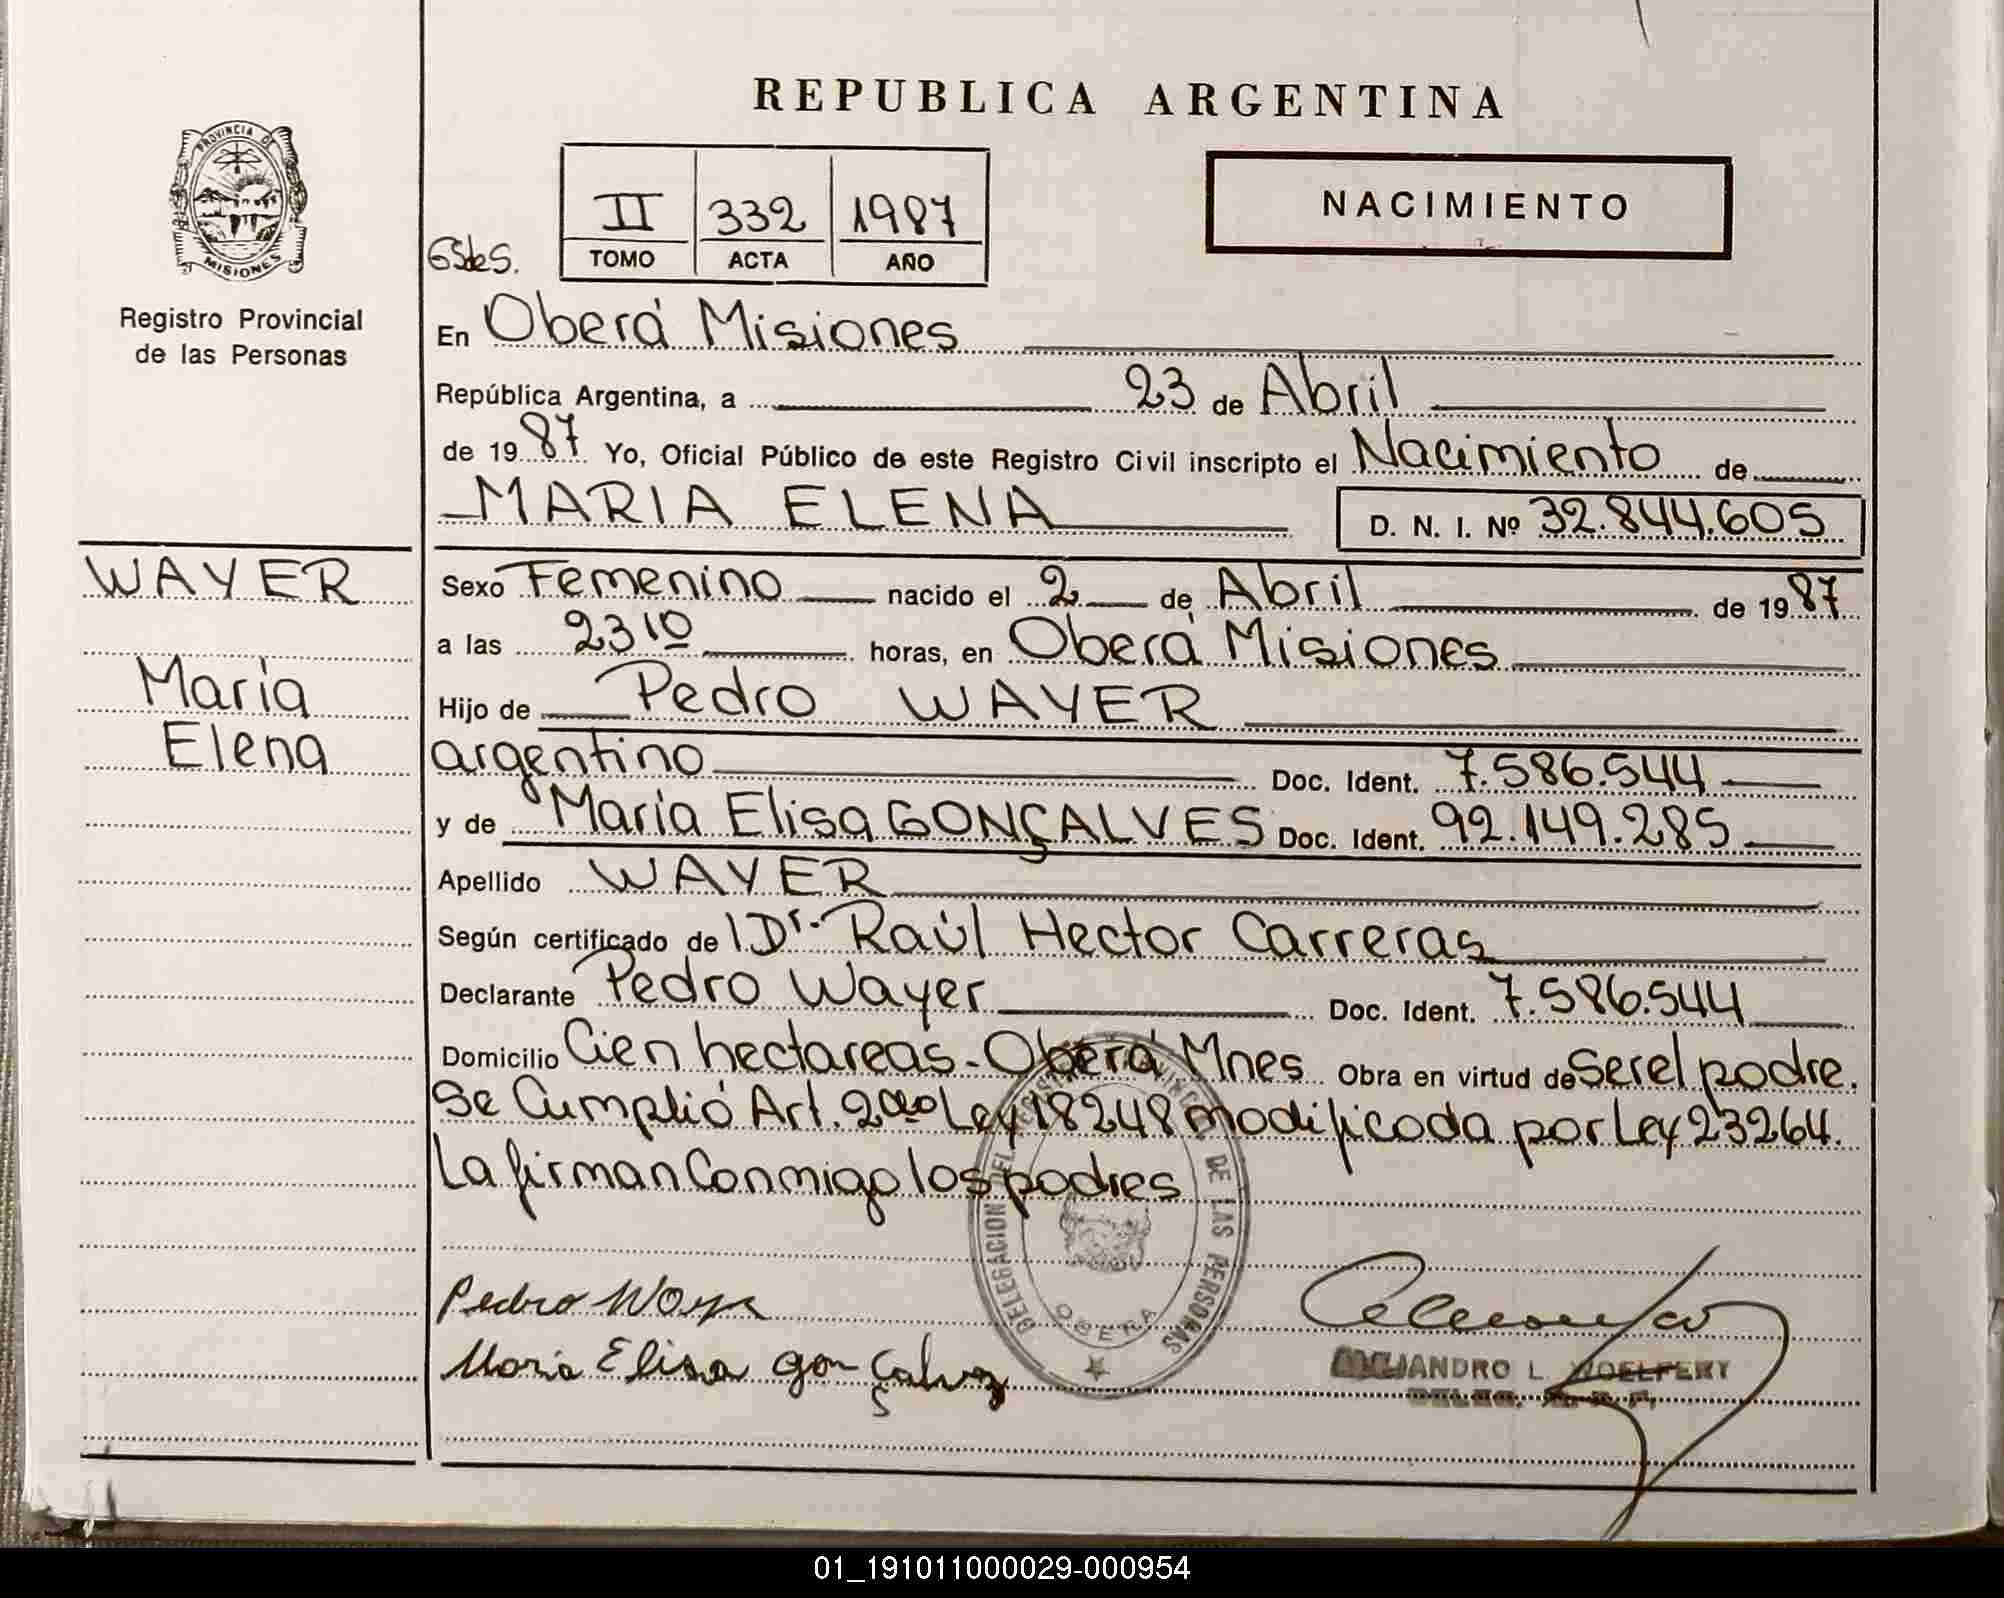 REPUBLICA ARGENTINA
PROVINCIA DE
MISIONES
Registro Provincial
de las Personas
II 332 1987
TOMO ACTA AÑO
NACIMIENTO
En Oberá Misiones
República Argentina, a 23 de Abril
de 1987 Yo, Oficial Público de este Registro Civil inscripto el Nacimiento de
MARIA ELENA
D. N. I. Nº 32.844.605
WAYER
María
Elena
Sexo Femenino nacido el 2 de Abril de 1987
a las 23 10 horas, en Oberá Misiones
Hijo de Pedro WAYER
argentino Doc. Ident. 7.586.544
y de María Elisa GONÇALVES Doc. Ident. 92.149.285
Apellido WAYER
Según certificado de Dr. Raúl Hector Carreras
Declarante Pedro Wayer Doc. Ident. 7.586.544
Domicilio Cien hectareas - Oberá Mnes Obra en virtud de ser el padre.
Se Cumplió Art. 2do Ley 18248 modificada por Ley 23264.
La firman Conmigo los padres
DELEGACION DEL REGISTRO PROVINCIAL DE LAS PERSONAS
OBERA
Pedro Wayer
Maria Elisa gonçalvez
ALEJANDRO L. WOELFERT
01_191011000029-000954